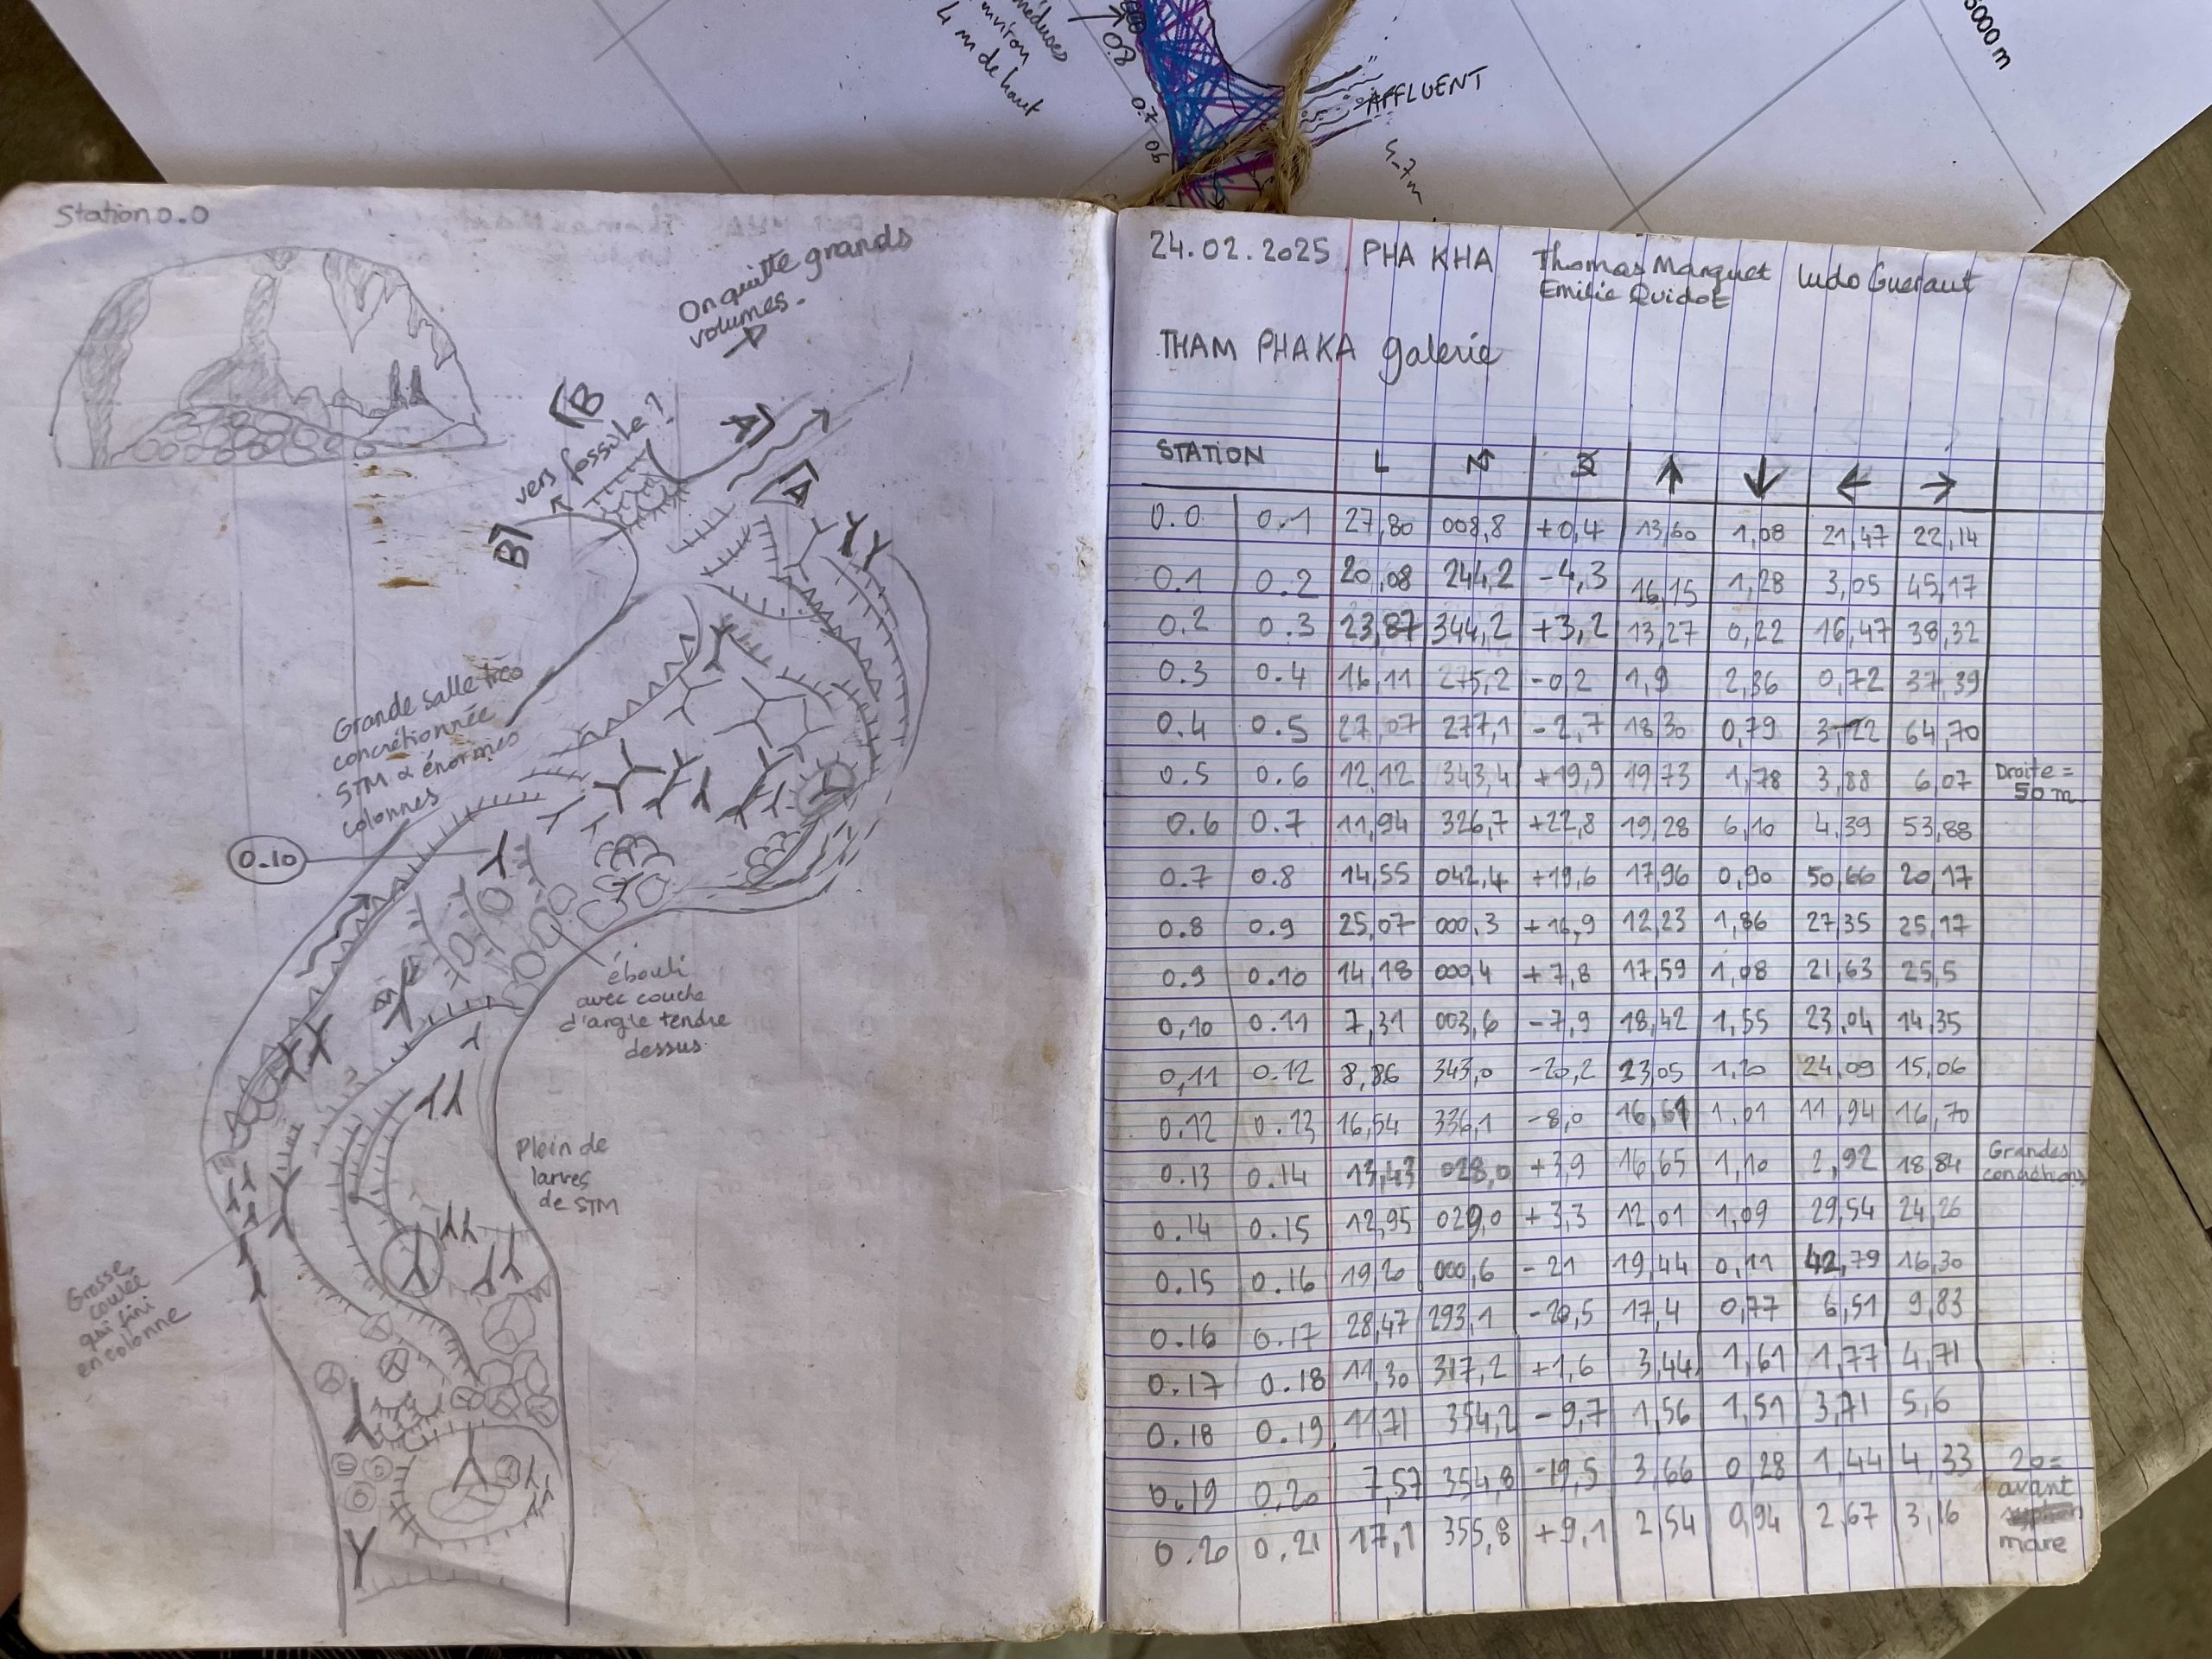 5000 m
méduses
environ
4 m de haut
0.8
0.7
06
AFFLUENT
5_7m
Station 0.0
On quitte grands
volumes.
B
vers fossile?
A
A
B
Grande salle très
concrétionnée
STM & énormes
colonnes
0.10
ébouli
avec couche
d'argile tendre
dessus
Plein de
larves
de STM
Grosse
coulée
qui fini
en colonne
24.02.2025 PHA KHA Thomas Marguet Ludo Gueraut
Emilie Quidot
THAM PHAKA galerie
STATION L N ↑ ↓ ← →
0.0 0.1 27,80 008,8 +0,4 13,60 1,08 21,47 22,14
0.1 0.2 20,08 244,2 -4,3 16,15 1,28 3,05 45,17
0.2 0.3 23,87 344,2 +3,2 13,27 0,22 16,47 38,32
0.3 0.4 16,11 275,2 -0,2 1,9 2,36 0,72 37,39
0.4 0.5 27,07 277,1 -2,7 18,30 0,79 3,22 64,70
0.5 0.6 12,12 343,4 +19,9 19,73 1,78 3,88 6,07 Droite =
50 m
0.6 0.7 11,94 326,7 +22,8 19,28 6,10 4,39 53,88
0.7 0.8 14,55 042,4 +19,6 17,96 0,90 50,66 20,17
0.8 0.9 25,07 000,3 +16,9 12,23 1,86 27,35 25,17
0.9 0.10 14,18 000,4 +7,8 17,59 1,08 21,63 25,5
0,10 0.11 7,31 003,6 -7,9 18,42 1,55 23,04 14,35
0,11 0.12 8,86 343,0 -20,2 23,05 1,20 24,09 15,06
0.12 0.13 16,54 336,1 -8,0 16,61 1,01 11,94 16,70
0.13 0.14 13,43 028,0 +3,9 16,65 1,10 2,92 18,84 Grandes
0.14 0.15 12,95 029,0 +3,3 12,01 1,09 29,54 24,26
0.15 0.16 19,20 000,6 -21 19,44 0,11 42,79 16,30
0.16 0.17 28,47 293,1 -20,5 17,4 0,77 6,51 9,83
0.17 0.18 11,30 317,2 +1,6 3,44 1,61 1,77 4,71
0.18 0.19 11,71 354,2 -9,7 1,56 1,51 3,71 5,6
0.19 0.20 7,57 354,8 -19,5 3,66 0,28 1,44 4,33 20=
avant
0.20 0.21 17,1 355,8 +9,1 2,54 0,94 2,67 3,16
mare